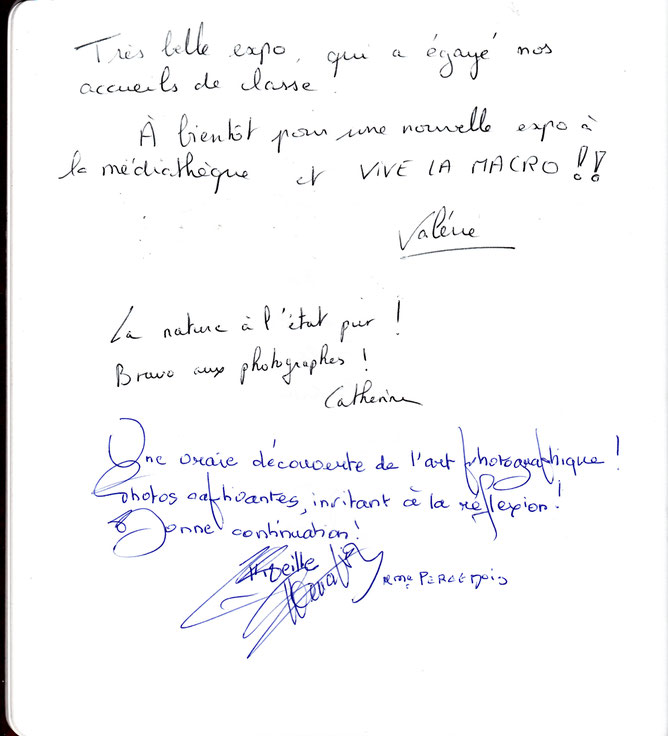 Très belle expo, qui a égayé nos
accueils de classe.
À bientôt pour une nouvelle expo à
la médiathèque et VIVE LA MACRO !!
Valérie
La nature à l'état pur !
Bravo aux photographes !
Catherine
Une vraie découverte de l'art photographique !
Photos captivantes, invitant à la réflexion !
Bonne continuation !
Mireille